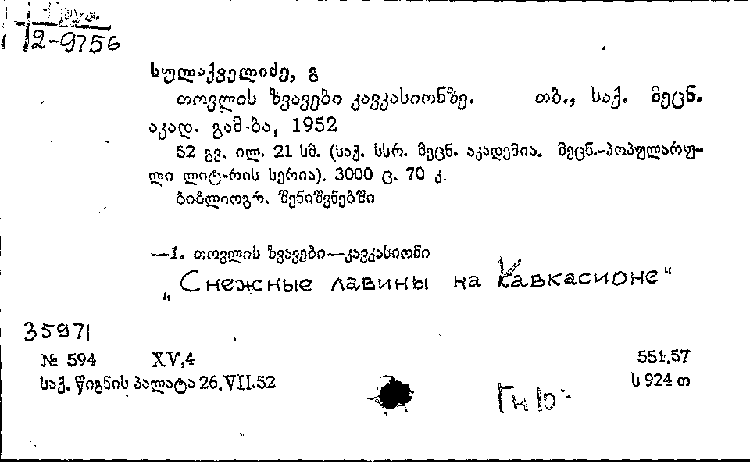 12-9756
სულაქველიძე, გ
თოვლის ზვავები კავკასიონზე. თბ., საქ. მეცნ.
აკად. გამ-ბა, 1952
52 გვ. ილ. 21 სმ. (საქ. სსრ. მეცნ. აკადემია. მეცნ.-პოპულარუ-
ლი ლიტ-რის სერია). 3000 ც. 70 კ.
ბიბლიოგრ. შენიშვნებში
—1. თოვლის ზვავები—კავკასიონი
„Снежные лавины на Кавкасионе"
35971
№ 594 XV,4 551.57
საქ. წიგნის პალატა 26.VII.52 ს 924 თ